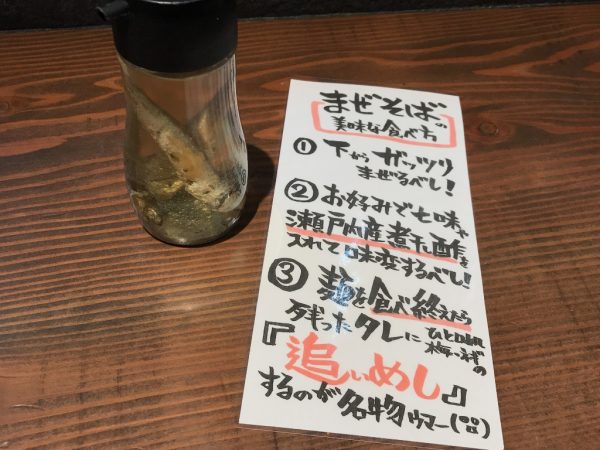 まぜそばの
美味な食べ方
① 下からガッツリ
まぜるべし!
② お好みで七味や
瀬戸内産煮干し酢を
入れて味変するべし!
③ 麺を食べ終えたら
残ったタレにひと口の
『追いめし』
するのが名物ウマー